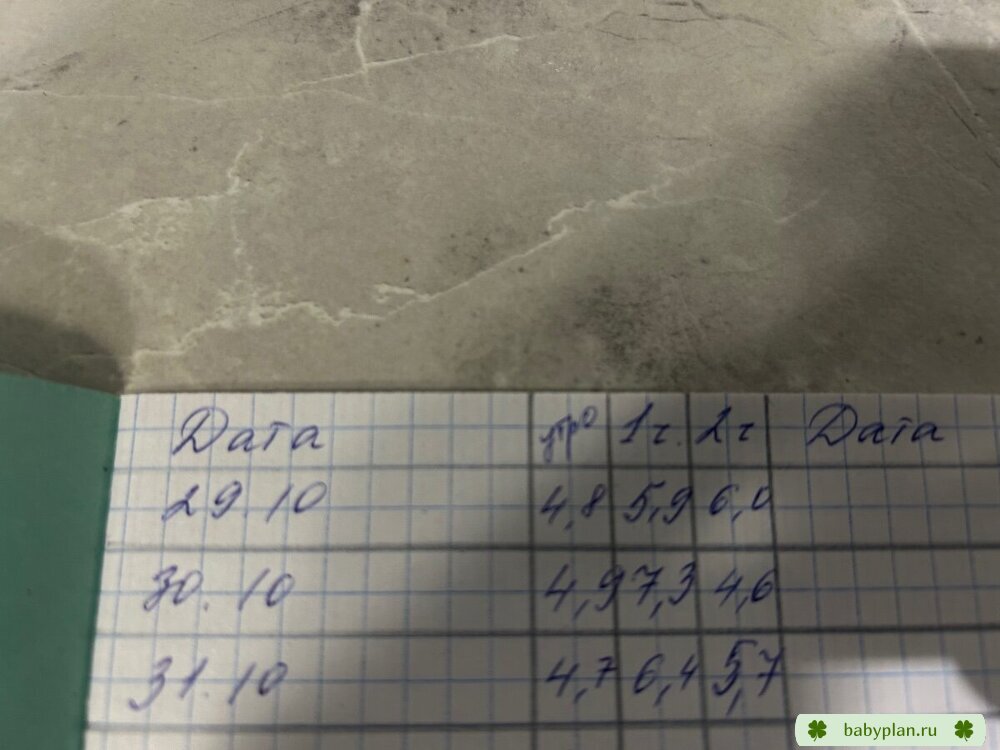 Дата утро 1ч. 2ч Дата
29.10 4,8 5,9 6,0
30.10 4,9 7,3 4,6
31.10 4,7 6,4 5,7
babyplan.ru